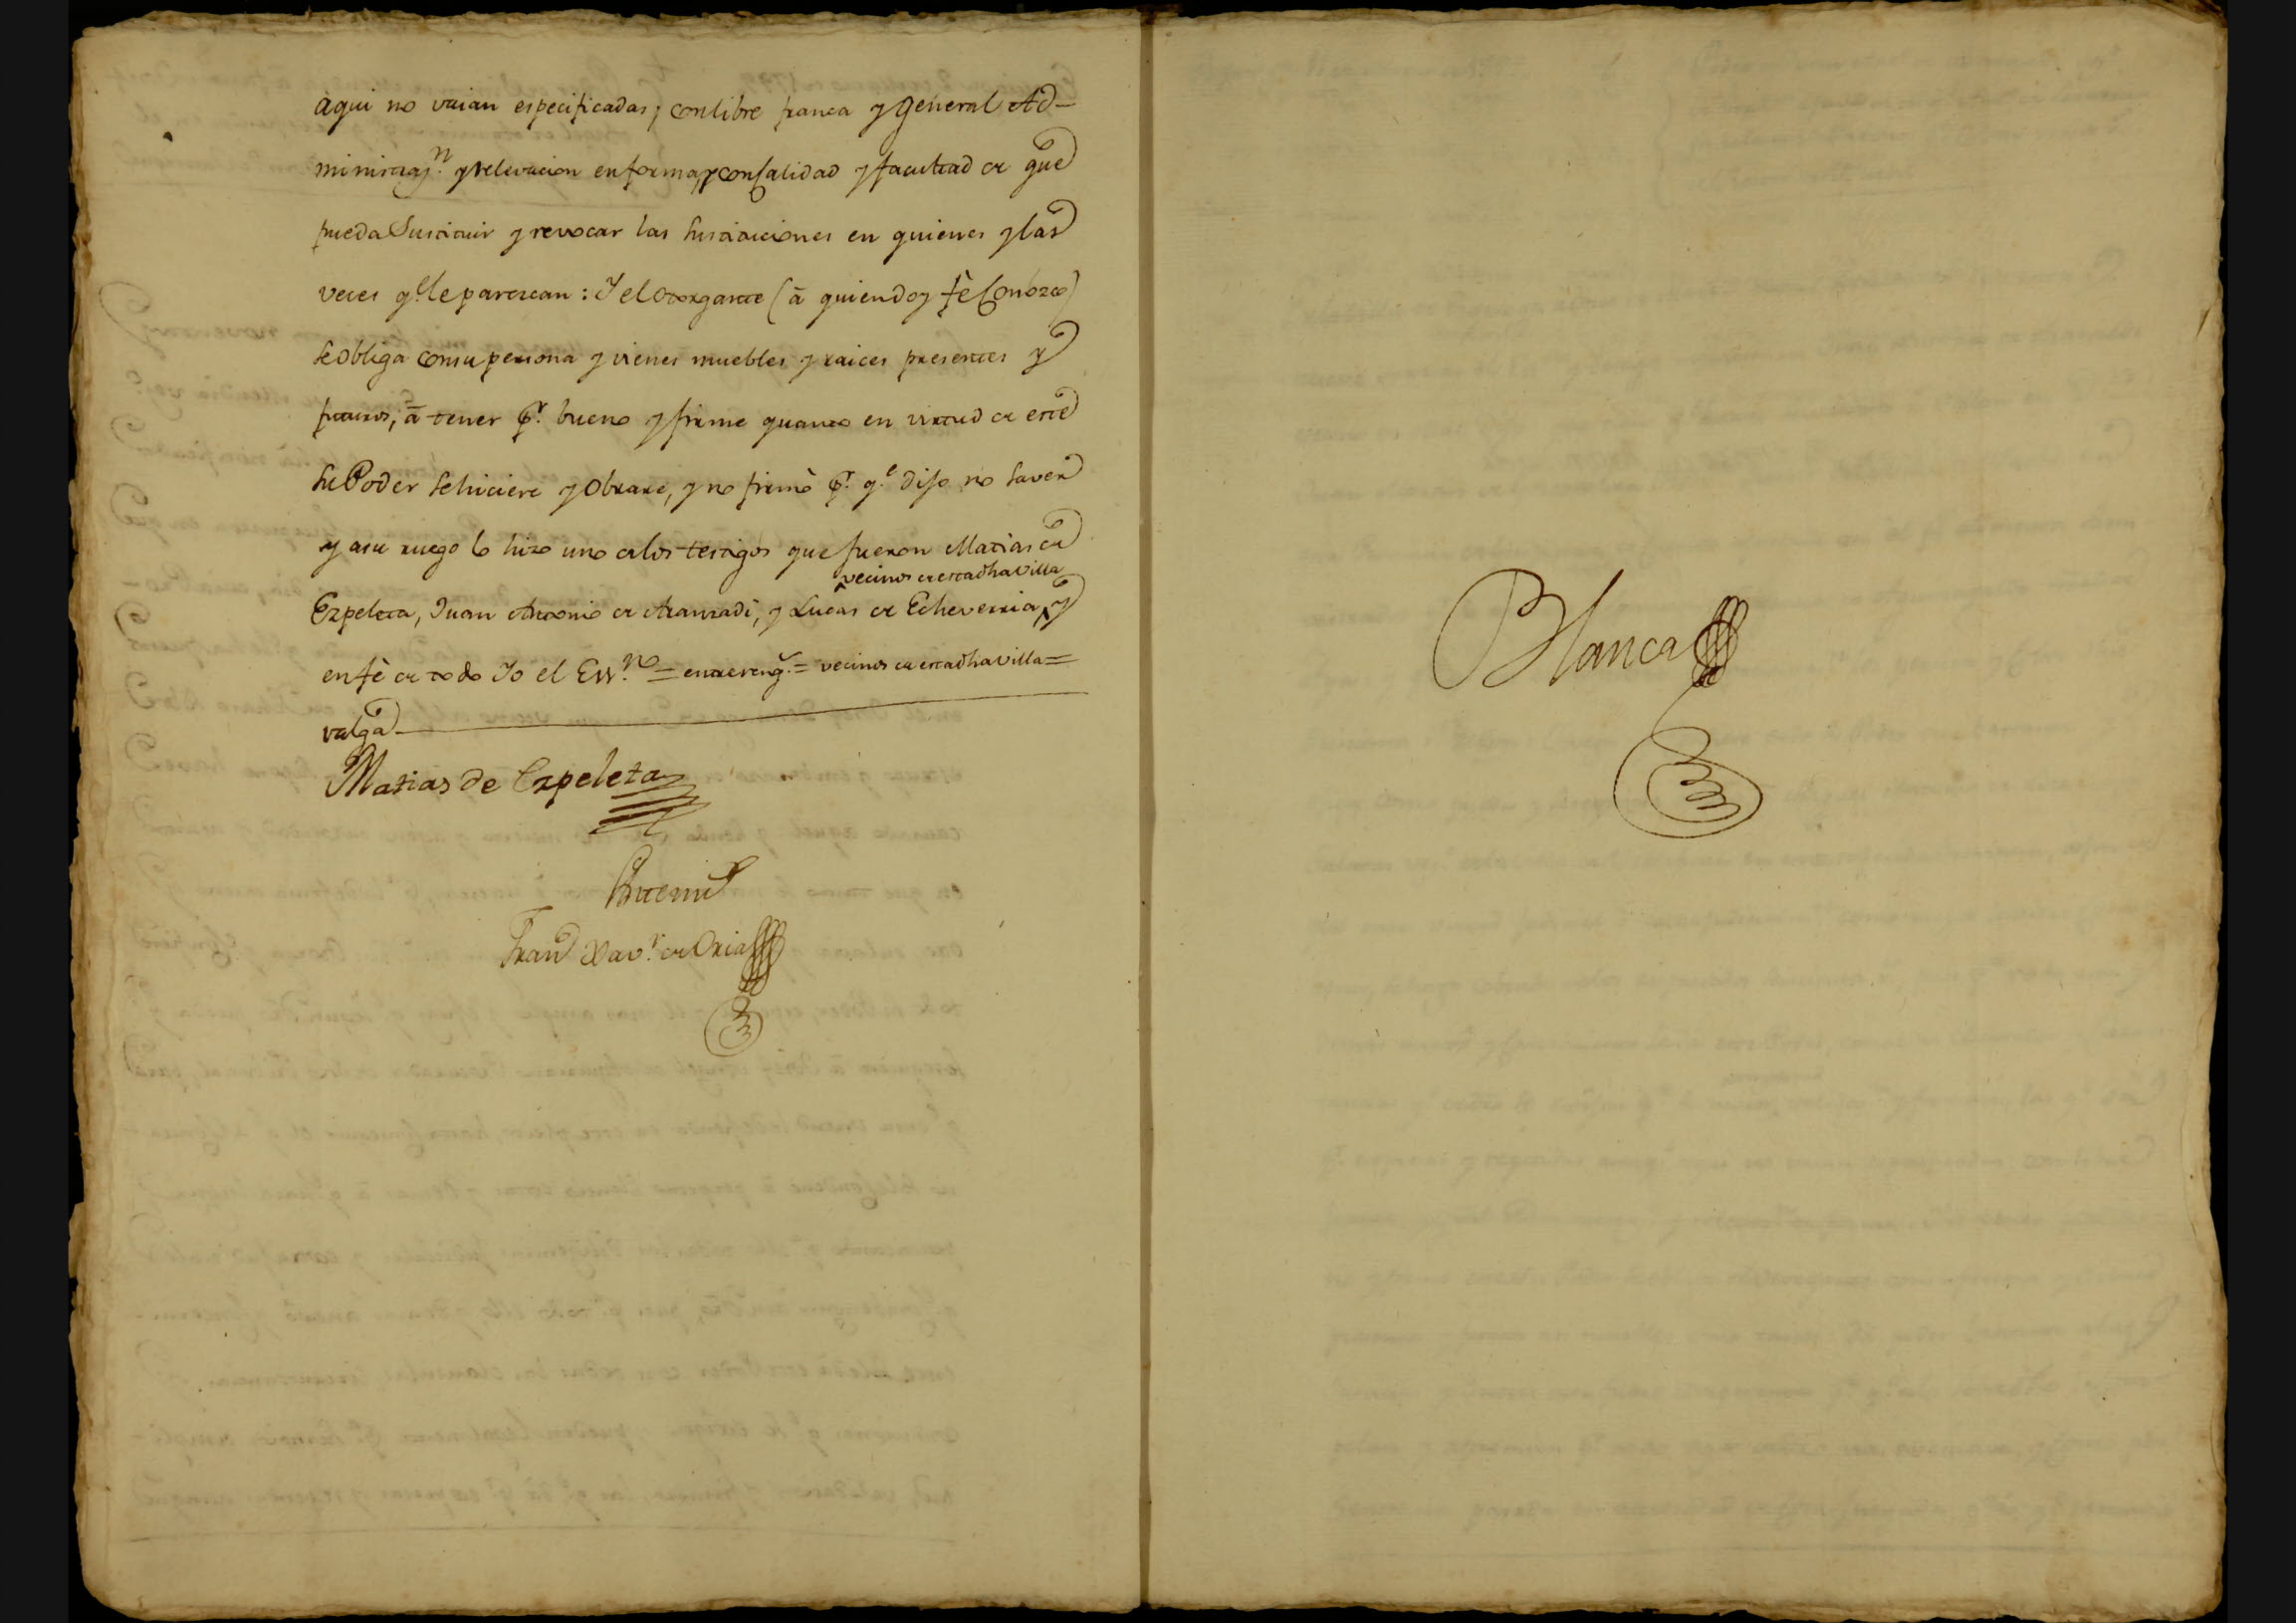 aqui no vaian especificadas, con libre franca y general Ad-
ministraz.n y relevacion en forma, y con calidad y facultad de que
pueda Sustituir y revocar las sustituciones en quienes y las
veces q.e le parezcan: Y el Otorgante (â quien doy fè Conozco)
se obliga con su persona y vienes muebles y raices presentes y
futuros, â tener p.r bueno y firme quanto en virtud de este
su Poder se hiciere y Obrare, y no firmò p.r q.e dijo no saver
y a su ruego lo hizo uno de los testigos que fueron Matias de
vecinos de esta dha Villa
Ezpeleta, Juan Antonio de Aranzadi, y Lucas de Echeverria, y
en fè de todo Yo el Ess.no = entrereng.s = vecinos de esta dha Villa =
valga
Matias de Ezpeleta
Ante mi
Fran.co Xav.r de Oria
Blanca